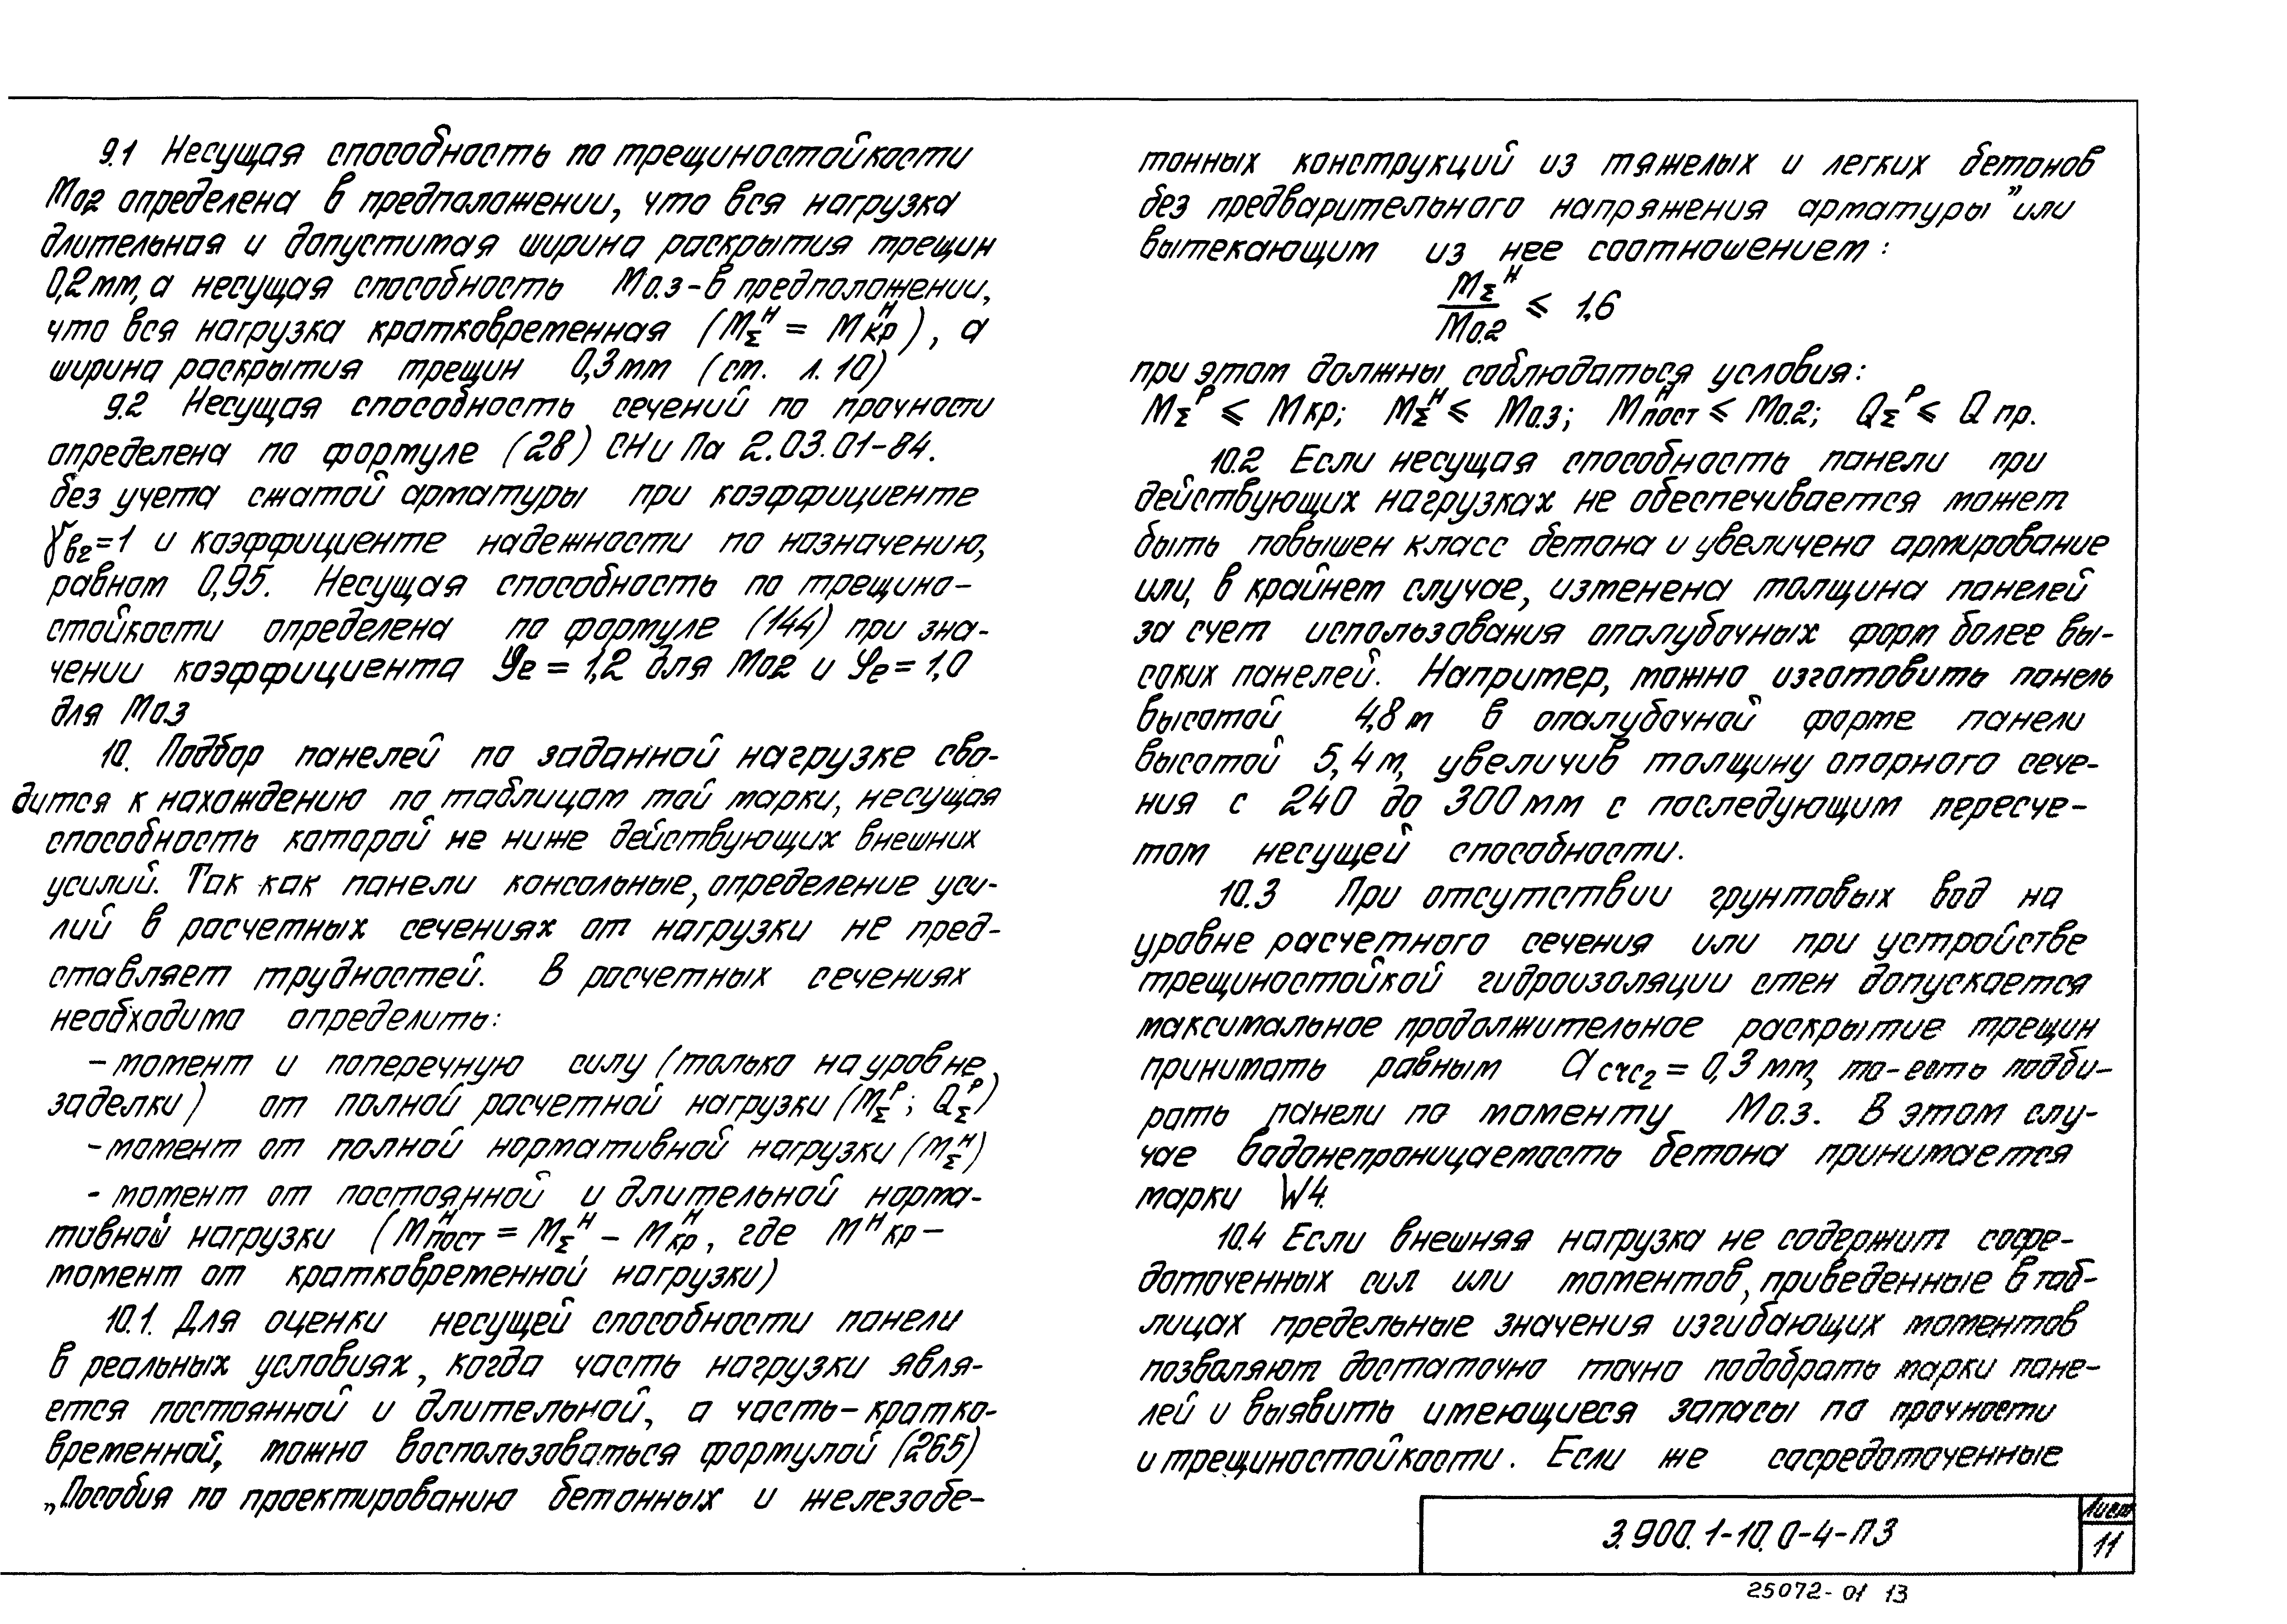 9.1 Несущая способность по трещиностойкости
М0.2 определена в предположении, что вся нагрузка
длительная и допустимая ширина раскрытия трещин
0,2 мм, а несущая способность М0.3 - в предположении,
что вся нагрузка кратковременная (МΣᴴ = Мкрᴴ), а
ширина раскрытия трещин 0,3 мм (ст. л. 10)
9.2 Несущая способность сечений по прочности
определена по формуле (28) СНиПа 2.03.01-84.
без учета сжатой арматуры при коэффициенте
γв2=1 и коэффициенте надежности по назначению,
равном 0,95. Несущая способность по трещино-
стойкости определена по формуле (144) при зна-
чении коэффициента φе = 1,2 для М0.2 и φе = 1,0
для М0.3
10. Подбор панелей по заданной нагрузке сво-
дится к нахождению по таблицам той марки, несущая
способность которой не ниже действующих внешних
усилий. Так как панели консольные, определение уси-
лий в расчетных сечениях от нагрузки не пред-
ставляет трудностей. В расчетных сечениях
необходимо определить:
- момент и поперечную силу (только на уровне
заделки) от полной расчетной нагрузки (МΣᴾ; QΣᴾ)
- момент от полной нормативной нагрузки (МΣᴴ)
- момент от постоянной и длительной норма-
тивной нагрузки (Мпостᴴ = МΣᴴ - Мкрᴴ, где Мᴴкр -
момент от кратковременной нагрузки)
10.1. Для оценки несущей способности панели
в реальных условиях, когда часть нагрузки явля-
ется постоянной и длительной, а часть - кратко-
временной, можно воспользоваться формулой (265)
„Пособия по проектированию бетонных и железобе-
тонных конструкций из тяжелых и легких бетонов
без предварительного напряжения арматуры" или
вытекающим из нее соотношением:
МΣᴴ / М0.2 ⩽ 1,6
при этом должны соблюдаться условия:
МΣᴾ ⩽ Мкр; МΣᴴ ⩽ М0.3; Мпостᴴ ⩽ М0.2; QΣᴾ ⩽ Q пр.
10.2 Если несущая способность панели при
действующих нагрузках не обеспечивается может
быть повышен класс бетона и увеличено армирование
или, в крайнем случае, изменена толщина панелей
за счет использования опалубочных форм более вы-
соких панелей. Например, можно изготовить панель
высотой 4,8 м в опалубочной форме панели
высотой 5,4 м, увеличив толщину опорного сече-
ния с 240 до 300 мм с последующим пересче-
том несущей способности.
10.3 При отсутствии грунтовых вод на
уровне расчетного сечения или при устройстве
трещиностойкой гидроизоляции стен допускается
максимальное продолжительное раскрытие трещин
принимать равным acrc2 = 0,3 мм, то-есть подби-
рать панели по моменту М0.3. В этом слу-
чае водонепроницаемость бетона принимается
марки W4.
10.4 Если внешняя нагрузка не содержит сосре-
доточенных сил или моментов, приведенные в таб-
лицах предельные значения изгибающих моментов
позволяют достаточно точно подобрать марки пане-
лей и выявить имеющиеся запасы по прочности
и трещиностойкости. Если же сосредоточенные
3.900.1-10.0-4-ПЗ
Лист
11
25072-01 13